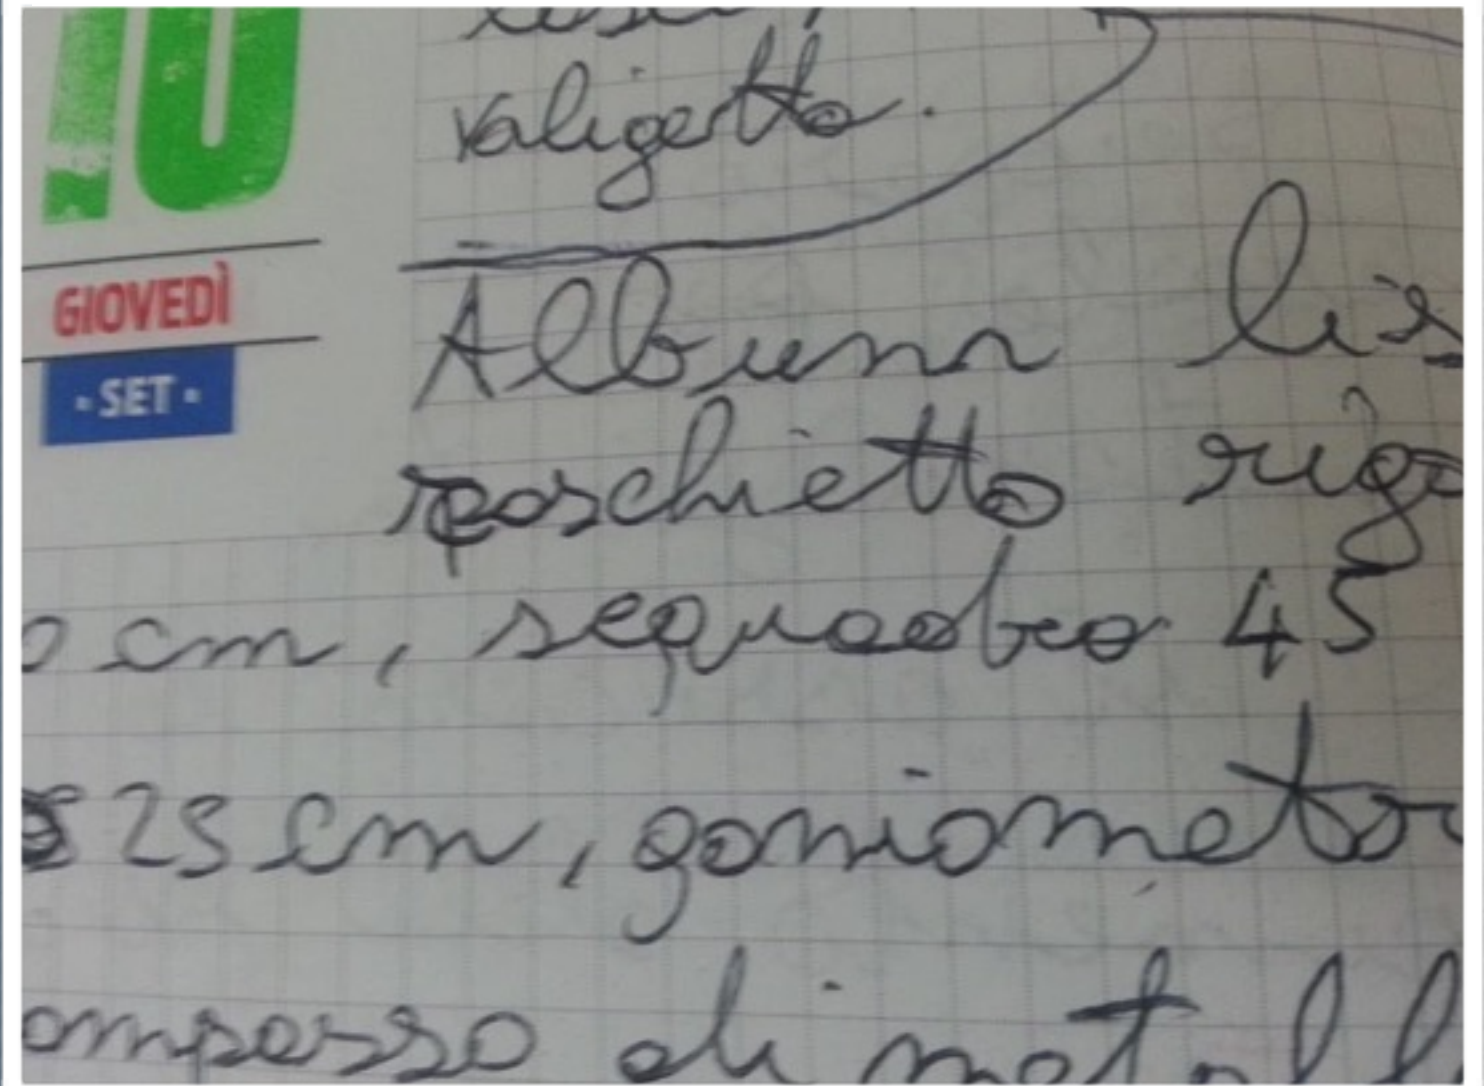 10
GIOVEDÌ
• SET •
valigetta.
Album lis
raschietto rigo
cm, sequadra 45
25 cm, goniometr
ompasso di metall